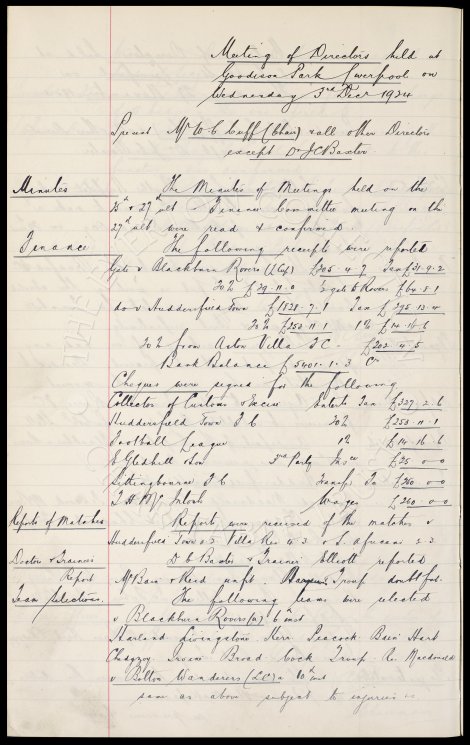 Meeting of Directors held at
Goodison Park Liverpool on
Wednesday 3rd Decr 1924
Present Mr W C Cuff (Chair) & all other Directors
except Dr J C Baxter
Minutes The Minutes of Meetings held on the
& 27th ult Finance Committee meeting on the
27th ult were read & confirmed.
Finance The following receipts were reported
Gate v Blackburn Rovers £205-4-7 Tax £31-9-2
20% £29-11-0 Rovers
do v Huddersfield Town £1528-7-1 Tax £295-13-4
20% £253-11-1 1% £14-16-6
20% from Aston Villa F C £202-4-5
Bank Balance £5401-1-3 Cr
Cheques were signed for the following
Collector of Customs & Excise Enterts Tax £327-2-6
Huddersfield Town F C 20% £253-11-1
Football League 1% £14-16-6
E Gledhill & Son 3rd Party Insce £25-0-0
Sittingbourne F C Transfer £260-0-0
T H McIntosh Wages £260-0-0
Reports of Matches Reports were received of the matches v
Huddersfield Town Villa Res 4-3 v S. Africans 2-3
Doctor & Trainers Dr Baxter & Trainer Elliott reported
Report McBain & Reid unfit. Troup doubtful.
Team Selections. The following teams were selected
v Blackburn Rovers (a) 6th inst
Harland Livingstone Kerr Peacock Bain Hart
Chedgzoy Irvine Broad Cock Troup Re. Macdonald
v Bolton Wanderers (LC) a 10th inst
same as above subject to injuries